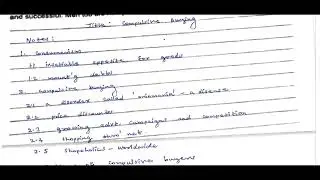 and successful. Men too are
Title: Compulsive Buying
Notes:
1. Consumerism
1.1 insatiable appetite for goods
1.2 mount'g debts
2. Compulsive buying
2.1 a disorder called 'oniomania' - a disease
2.2 price discounts
2.3 growing advt. campaigns and competition
2.4 shopping thro' net
2.5 Shopaholics - Worldwide
compulsive buyers